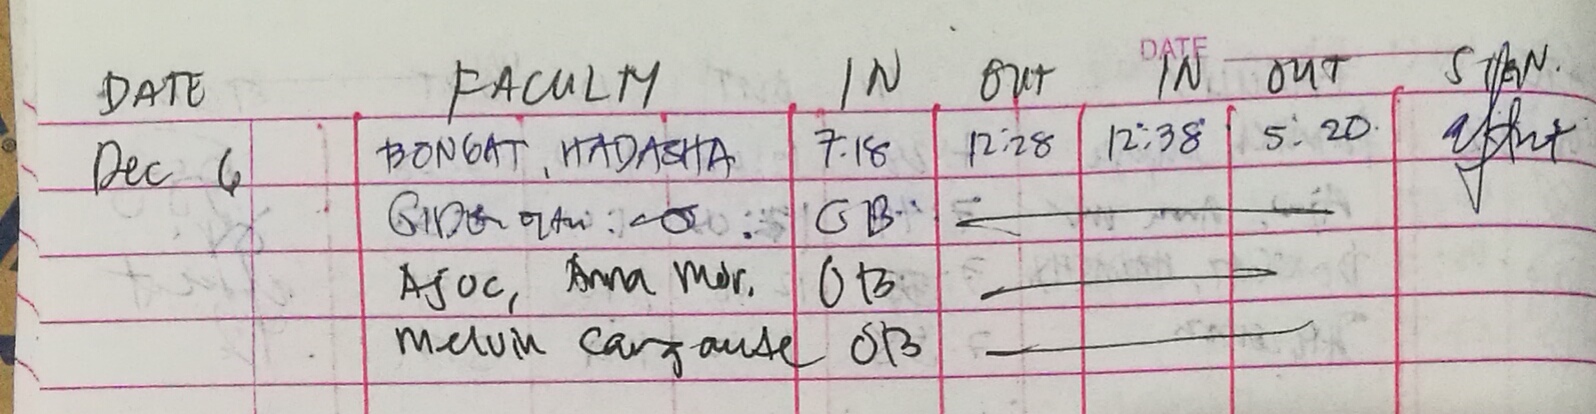 DATE
DATE FACULTY IN OUT IN OUT SIGN.
Dec 6 BONGAT, HADASHA 7:18 12:28 12:38 5:20
OB
Asoc, Anna Mar. OB
Melvin OB